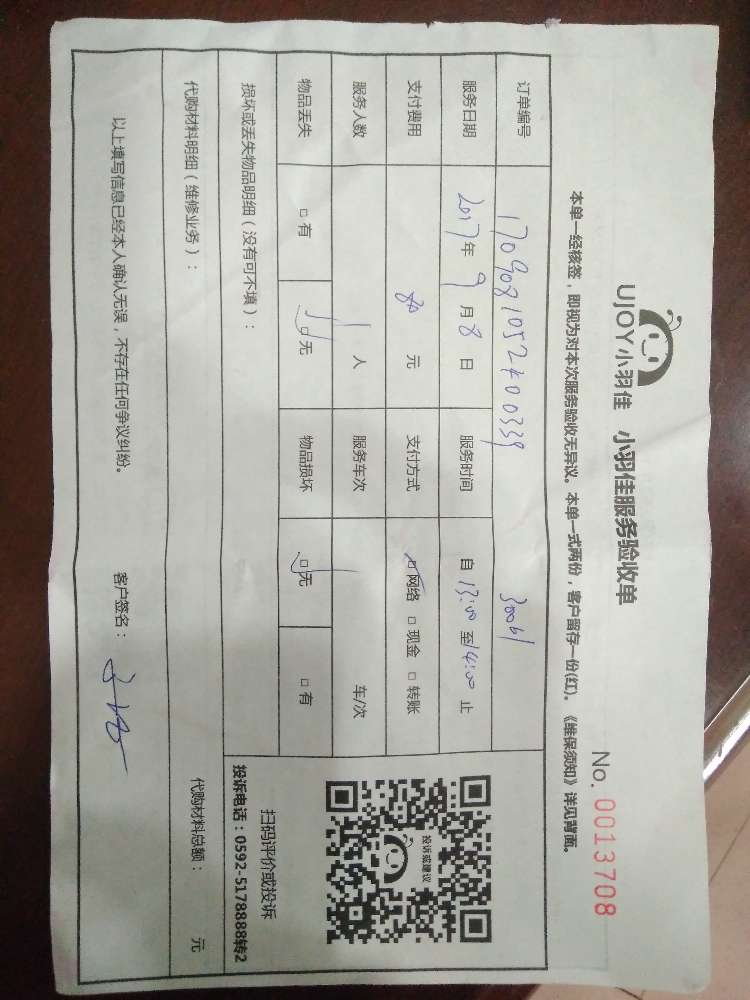 UJOY小羽佳 小羽佳服务验收单
No. 0013708
本单一经核签，即视为对本次服务验收无异议。本单一式两份，客户留存一份(红)。《维保须知》详见背面。
订单编号 30061
服务日期 2017年9月8日 服务时间 自13:00至14:00止
支付费用 80元 支付方式 □网络 □现金 □转账
服务人数 1人 服务车次 车/次
物品丢失 □有 □无 物品损坏 □无 □有
损坏或丢失物品明细（没有可不填）：
投诉或建议
扫码评价或投诉
投诉电话：0592-5178888转2
代购材料明细（维修业务）：
代购材料总额： 元
以上填写信息已经本人确认无误，不存在任何争议纠纷。 客户签名：